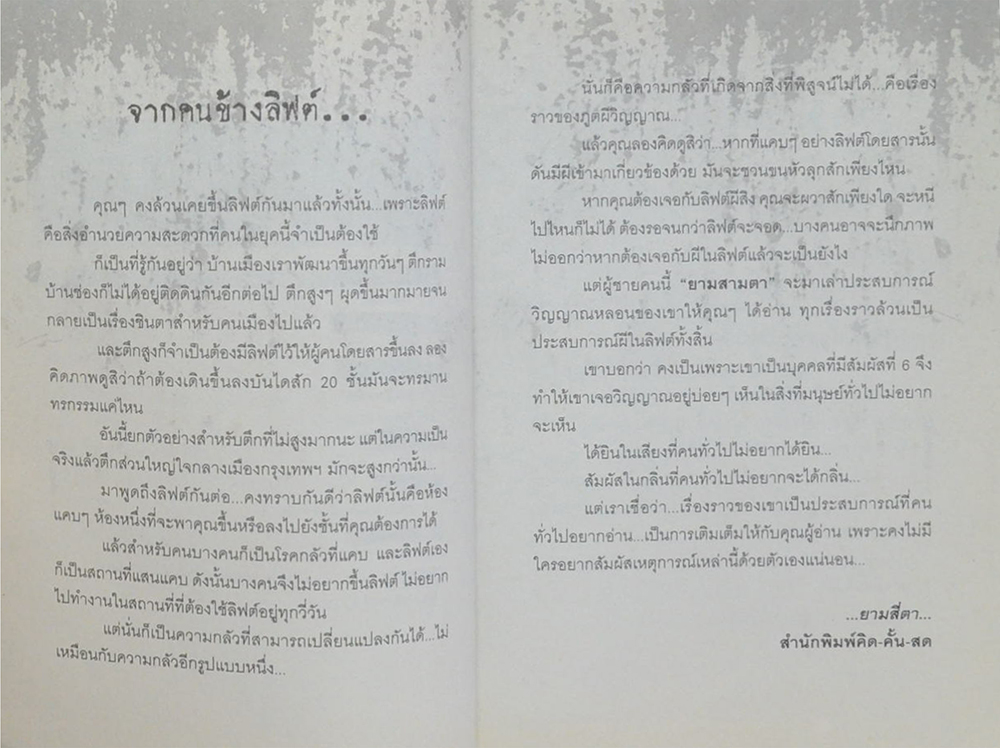 จากคนข้างลิฟต์...
คุณๆ คงล้วนเคยขึ้นลิฟต์กันมาแล้วทั้งนั้น...เพราะลิฟต์
คือสิ่งอำนวยความสะดวกที่คนในยุคนี้จำเป็นต้องใช้
ก็เป็นที่รู้กันอยู่ว่า บ้านเมืองเราพัฒนาขึ้นทุกวันๆ ตึกราม
บ้านช่องก็ไม่ได้อยู่ติดดินกันอีกต่อไป ตึกสูงๆ ผุดขึ้นมากมายจน
กลายเป็นเรื่องชินตาสำหรับคนเมืองไปแล้ว
และตึกสูงก็จำเป็นต้องมีลิฟต์ไว้ให้ผู้คนโดยสารขึ้นลง ลอง
คิดภาพดูสิว่าถ้าต้องเดินขึ้นลงบันไดสัก 20 ชั้นมันจะทรมาน
ทรกรรมแค่ไหน
อันนี้ยกตัวอย่างสำหรับตึกที่ไม่สูงมากนะ แต่ในความเป็น
จริงแล้วตึกส่วนใหญ่ใจกลางเมืองกรุงเทพฯ มักจะสูงกว่านั้น...
มาพูดถึงลิฟต์กันต่อ...คงทราบกันดีว่าลิฟต์นั้นคือห้อง
แคบๆ ห้องหนึ่งที่จะพาคุณขึ้นหรือลงไปยังชั้นที่คุณต้องการได้
แล้วสำหรับคนบางคนก็เป็นโรคกลัวที่แคบ และลิฟต์เอง
ก็เป็นสถานที่แสนแคบ ดังนั้นบางคนจึงไม่อยากขึ้นลิฟต์ ไม่อยาก
ไปทำงานในสถานที่ที่ต้องใช้ลิฟต์อยู่ทุกวี่วัน
แต่นั่นก็เป็นความกลัวที่สามารถเปลี่ยนแปลงกันได้...ไม่
เหมือนกับความกลัวอีกรูปแบบหนึ่ง...
นั่นก็คือความกลัวที่เกิดจากสิ่งที่พิสูจน์ไม่ได้...คือเรื่อง
ราวของภูตผีวิญญาณ...
แล้วคุณลองคิดดูสิว่า...หากที่แคบๆ อย่างลิฟต์โดยสารนั้น
ดันมีผีเข้ามาเกี่ยวข้องด้วย มันจะชวนขนหัวลุกสักเพียงไหน
หากคุณต้องเจอกับลิฟต์ผีสิง คุณจะผวาสักเพียงใด จะหนี
ไปไหนก็ไม่ได้ ต้องรอจนกว่าลิฟต์จะจอด...บางคนอาจจะนึกภาพ
ไม่ออกว่าหากต้องเจอกับผีในลิฟต์แล้วจะเป็นยังไง
แต่ผู้ชายคนนี้ "ยามสามตา" จะมาเล่าประสบการณ์
วิญญาณหลอนของเขาให้คุณๆ ได้อ่าน ทุกเรื่องราวล้วนเป็น
ประสบการณ์ผีในลิฟต์ทั้งสิ้น
เขาบอกว่า คงเป็นเพราะเขาเป็นบุคคลที่มีสัมผัสที่ 6 จึง
ทำให้เขาเจอวิญญาณอยู่บ่อยๆ เห็นในสิ่งที่มนุษย์ทั่วไปไม่อยาก
จะเห็น
ได้ยินในเสียงที่คนทั่วไปไม่อยากได้ยิน...
สัมผัสในกลิ่นที่คนทั่วไปไม่อยากจะได้กลิ่น...
แต่เราเชื่อว่า...เรื่องราวของเขาเป็นประสบการณ์ที่คน
ทั่วไปอยากอ่าน...เป็นการเติมเต็มให้กับคุณผู้อ่าน เพราะคงไม่มี
ใครอยากสัมผัสเหตุการณ์เหล่านี้ด้วยตัวเองแน่นอน...
...ยามสี่ตา...
สำนักพิมพ์คิด-คั้น-สด